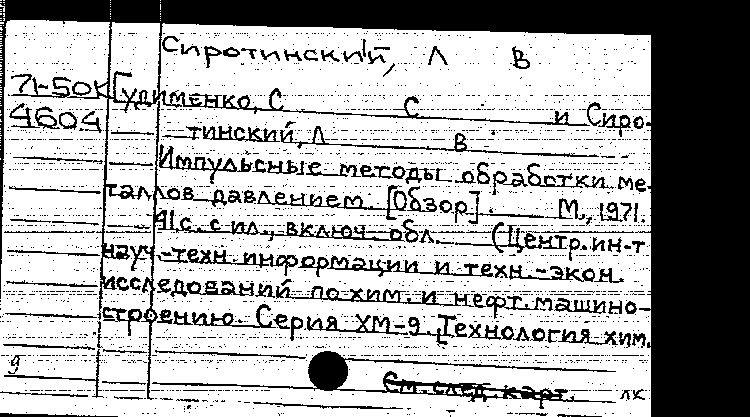 Сиротинский, Л В
71-50К [Гудименко, С С и Сиро-
4604 тинский, Л В.
Импульсные методы обработки ме-
таллов давлением. [Обзор]. М., 1971.
41с. с ил., включ. обл. (Центр. ин-т
науч.-техн. информации и техн.-экон.
исследований по хим. и нефт. машино-
строению. Серия ХМ-9. [Технология хим.
9
См. след. карт. лк